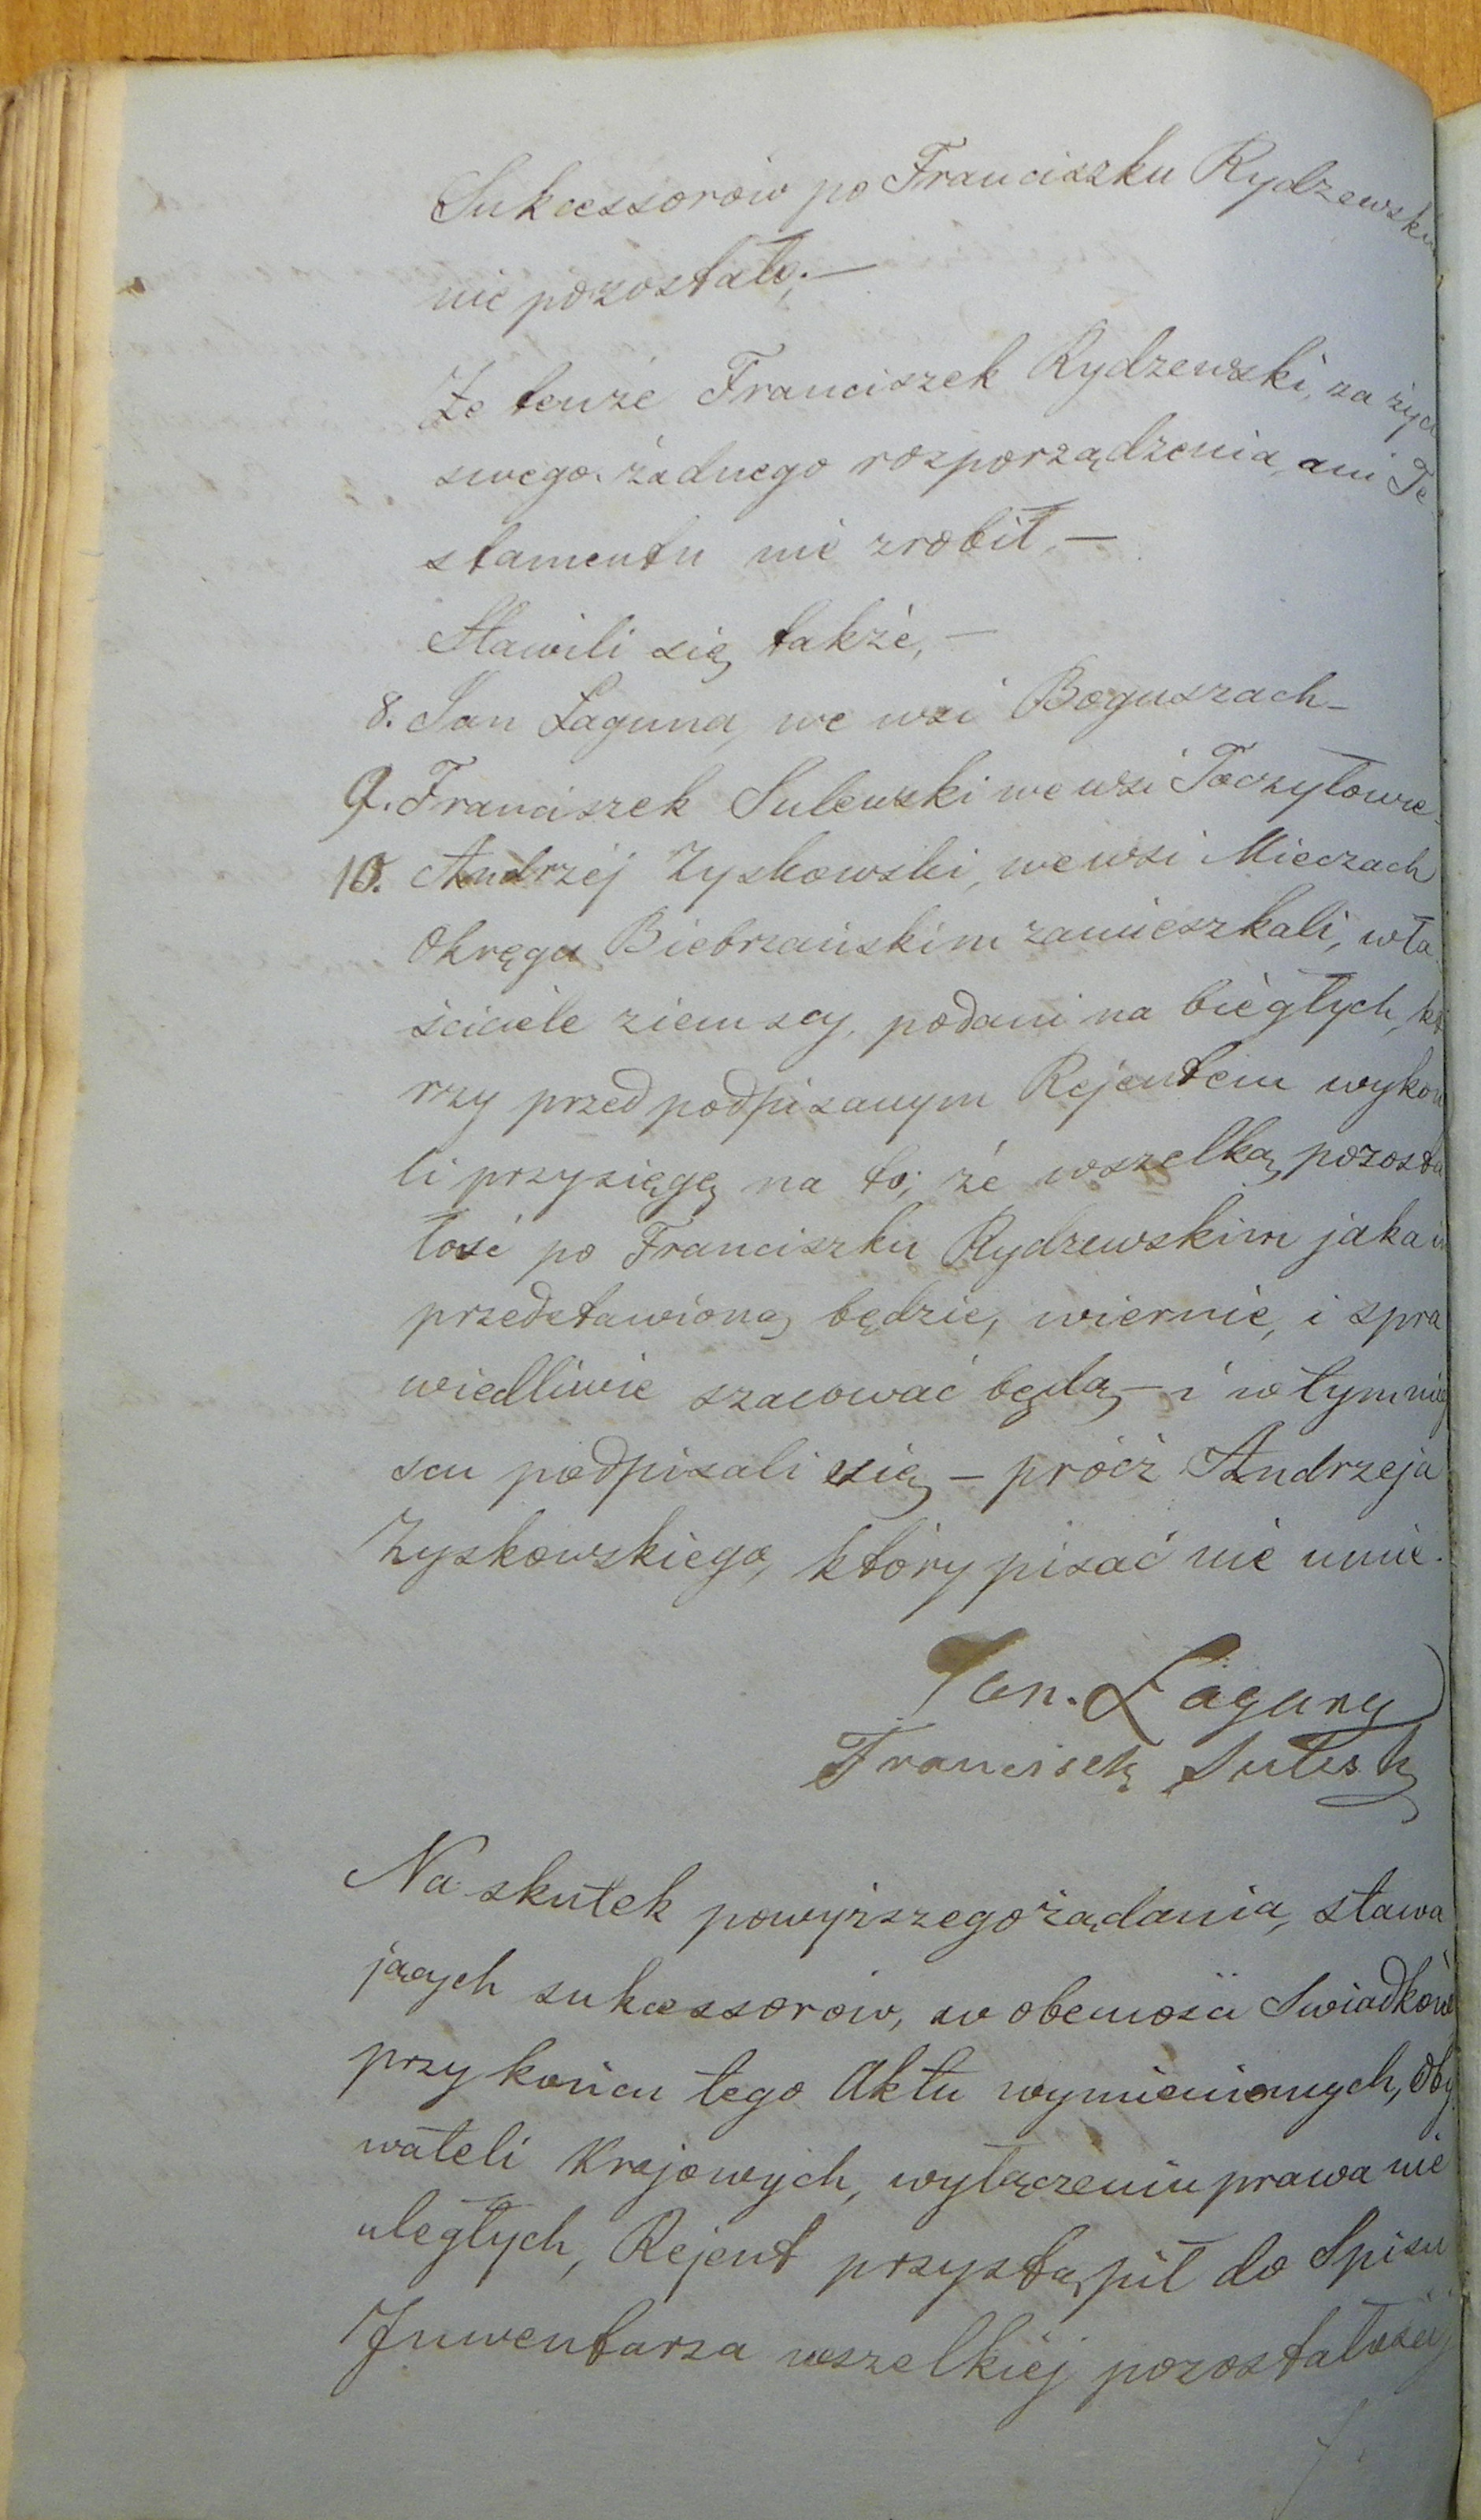 Sukcessorów po Franciszku Rydzewski
nie pozostało;—
Że tenże Franciszek Rydzewski, za życi
swego żadnego rozporządzenia, ani Te
stamentu nie zrobił,—
Stawili się także,—
8. Jan Łaguna, we wsi Boguszach—
9. Franciszek Sulewski we wsi Toczyłowie—
10. Andrzéj Zyskowski, we wsi Mieczach
Okręgu Biebrzańskim zamieszkali, wła
ściciele ziemscy, podani na biegłych, kt
rzy przed podpisanym Rejentem wykon
li przysięgę na to; że wszelką pozosta
łość po Franciszku Rydzewskim jaka i
przedstawioną będzie, wiernie, i spra
wiedliwie szacować będą,— i w tym miej
scu podpisali się,— prócz Andrzeja
Zyskowskiego, który pisać nie umie.
Jan. Łaguna
Franciszek
Na skutek powyższego żądania, stawa
jących sukcessorów, w obecności Swiadków
przy końcu tego Aktu wymienionych, Oby
wateli Krajowych, wyłączeniu prawa nie
uległych, Rejent przystąpił do Spisu
Inwentarza wszelkiéj pozostałości,